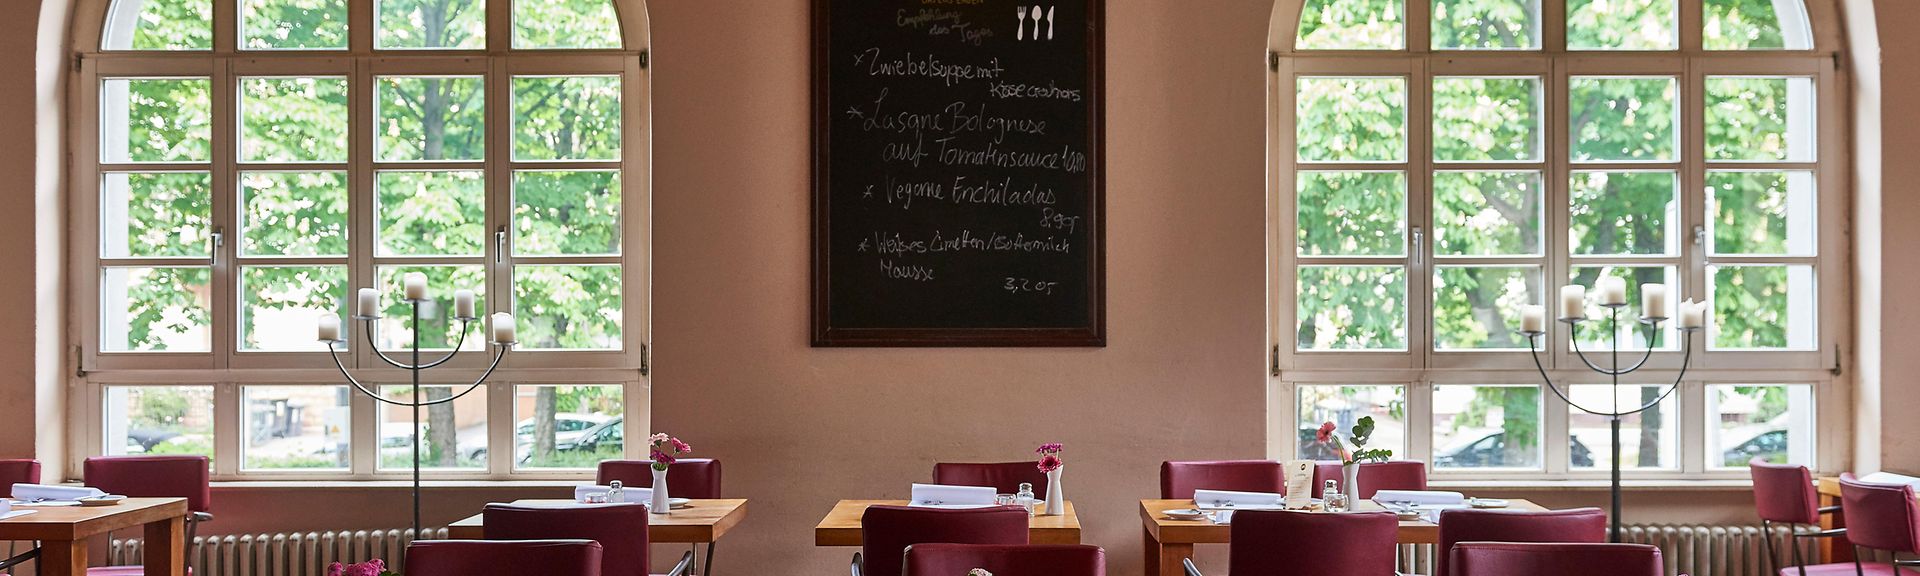 Empfehlung
des Tages
* Zwiebelsuppe mit
Käsecroutons
* Lasagne Bolognese
auf Tomatensauce
* Vegane Enchiladas
8,90
* Weißes Limetten/Buttermilch
Mousse
3,20